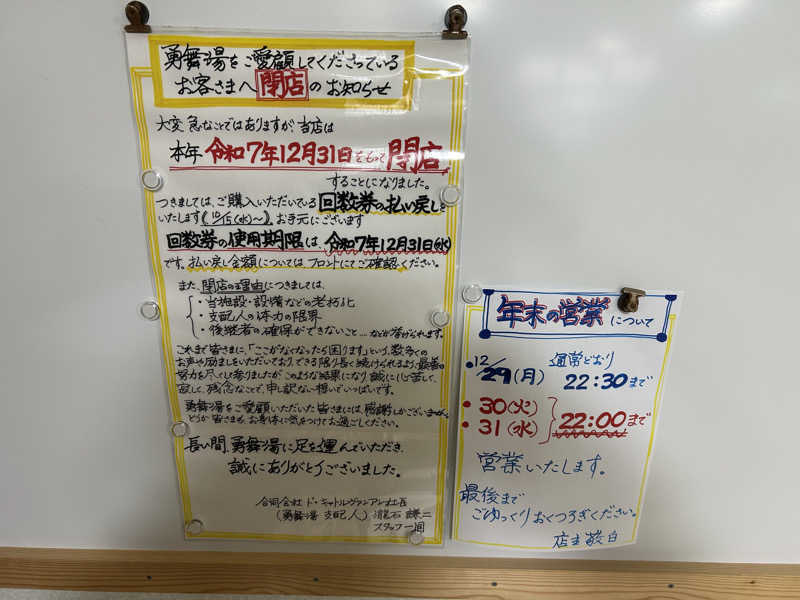 勇舞湯をご愛顧してくださっている
お客さまへ閉店のお知らせ
大変急なことではありますが、当店は
本年 令和7年12月31日をもって閉店
することになりました。
つきましては、ご購入いただいている回数券の払い戻しを
いたします《10/15(水)〜》。お手元にございます
回数券の使用期限は、令和7年12月31日(水)
です。払い戻し金額については、フロントにてご確認ください。
また、閉店の理由につきましては、
・当施設・設備などの老朽化
・支配人の体力の限界
・後継者の確保ができないこと…などが挙げられます。
これまで皆さまに、「ここがなくなったら困ります」という、数多くの
お声や励ましをいただいており、できる限り長く続けられるよう、最善の
努力を尽くして参りましたが、このような結果になり、誠に心苦しく、
寂しく、残念なことで、申し訳ない想いでいっぱいです。
勇舞湯をご愛顧いただいた皆さまには、感謝しかございません。
どうか皆さまも、お身体に気をつけてお過ごしください。
長い間、勇舞湯に足を運んでいただき、
誠にありがとうございました。
合同会社 ド・キャトルヴァンアン社
(勇舞湯 支配人) 瀧石 謙二
スタッフ一同
年末の営業について
・12/29(月) 通常どおり 22:30まで
・30(火)
・31(水) 22:00まで
営業いたします。
最後まで
ごゆっくりおくつろぎください。
店主敬白